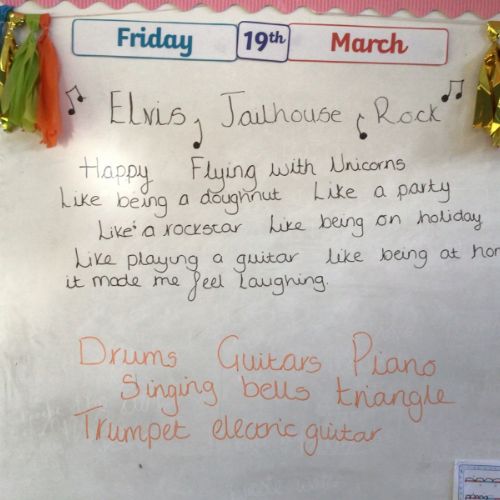 Friday 19th March
Elvis, Jailhouse Rock
Happy Flying with Unicorns
Like being a doughnut Like a party
Like a rockstar Like being on holiday
Like playing a guitar like being at
it made me feel laughing.
Drums Guitars Piano
Singing bells triangle
Trumpet electric guitar